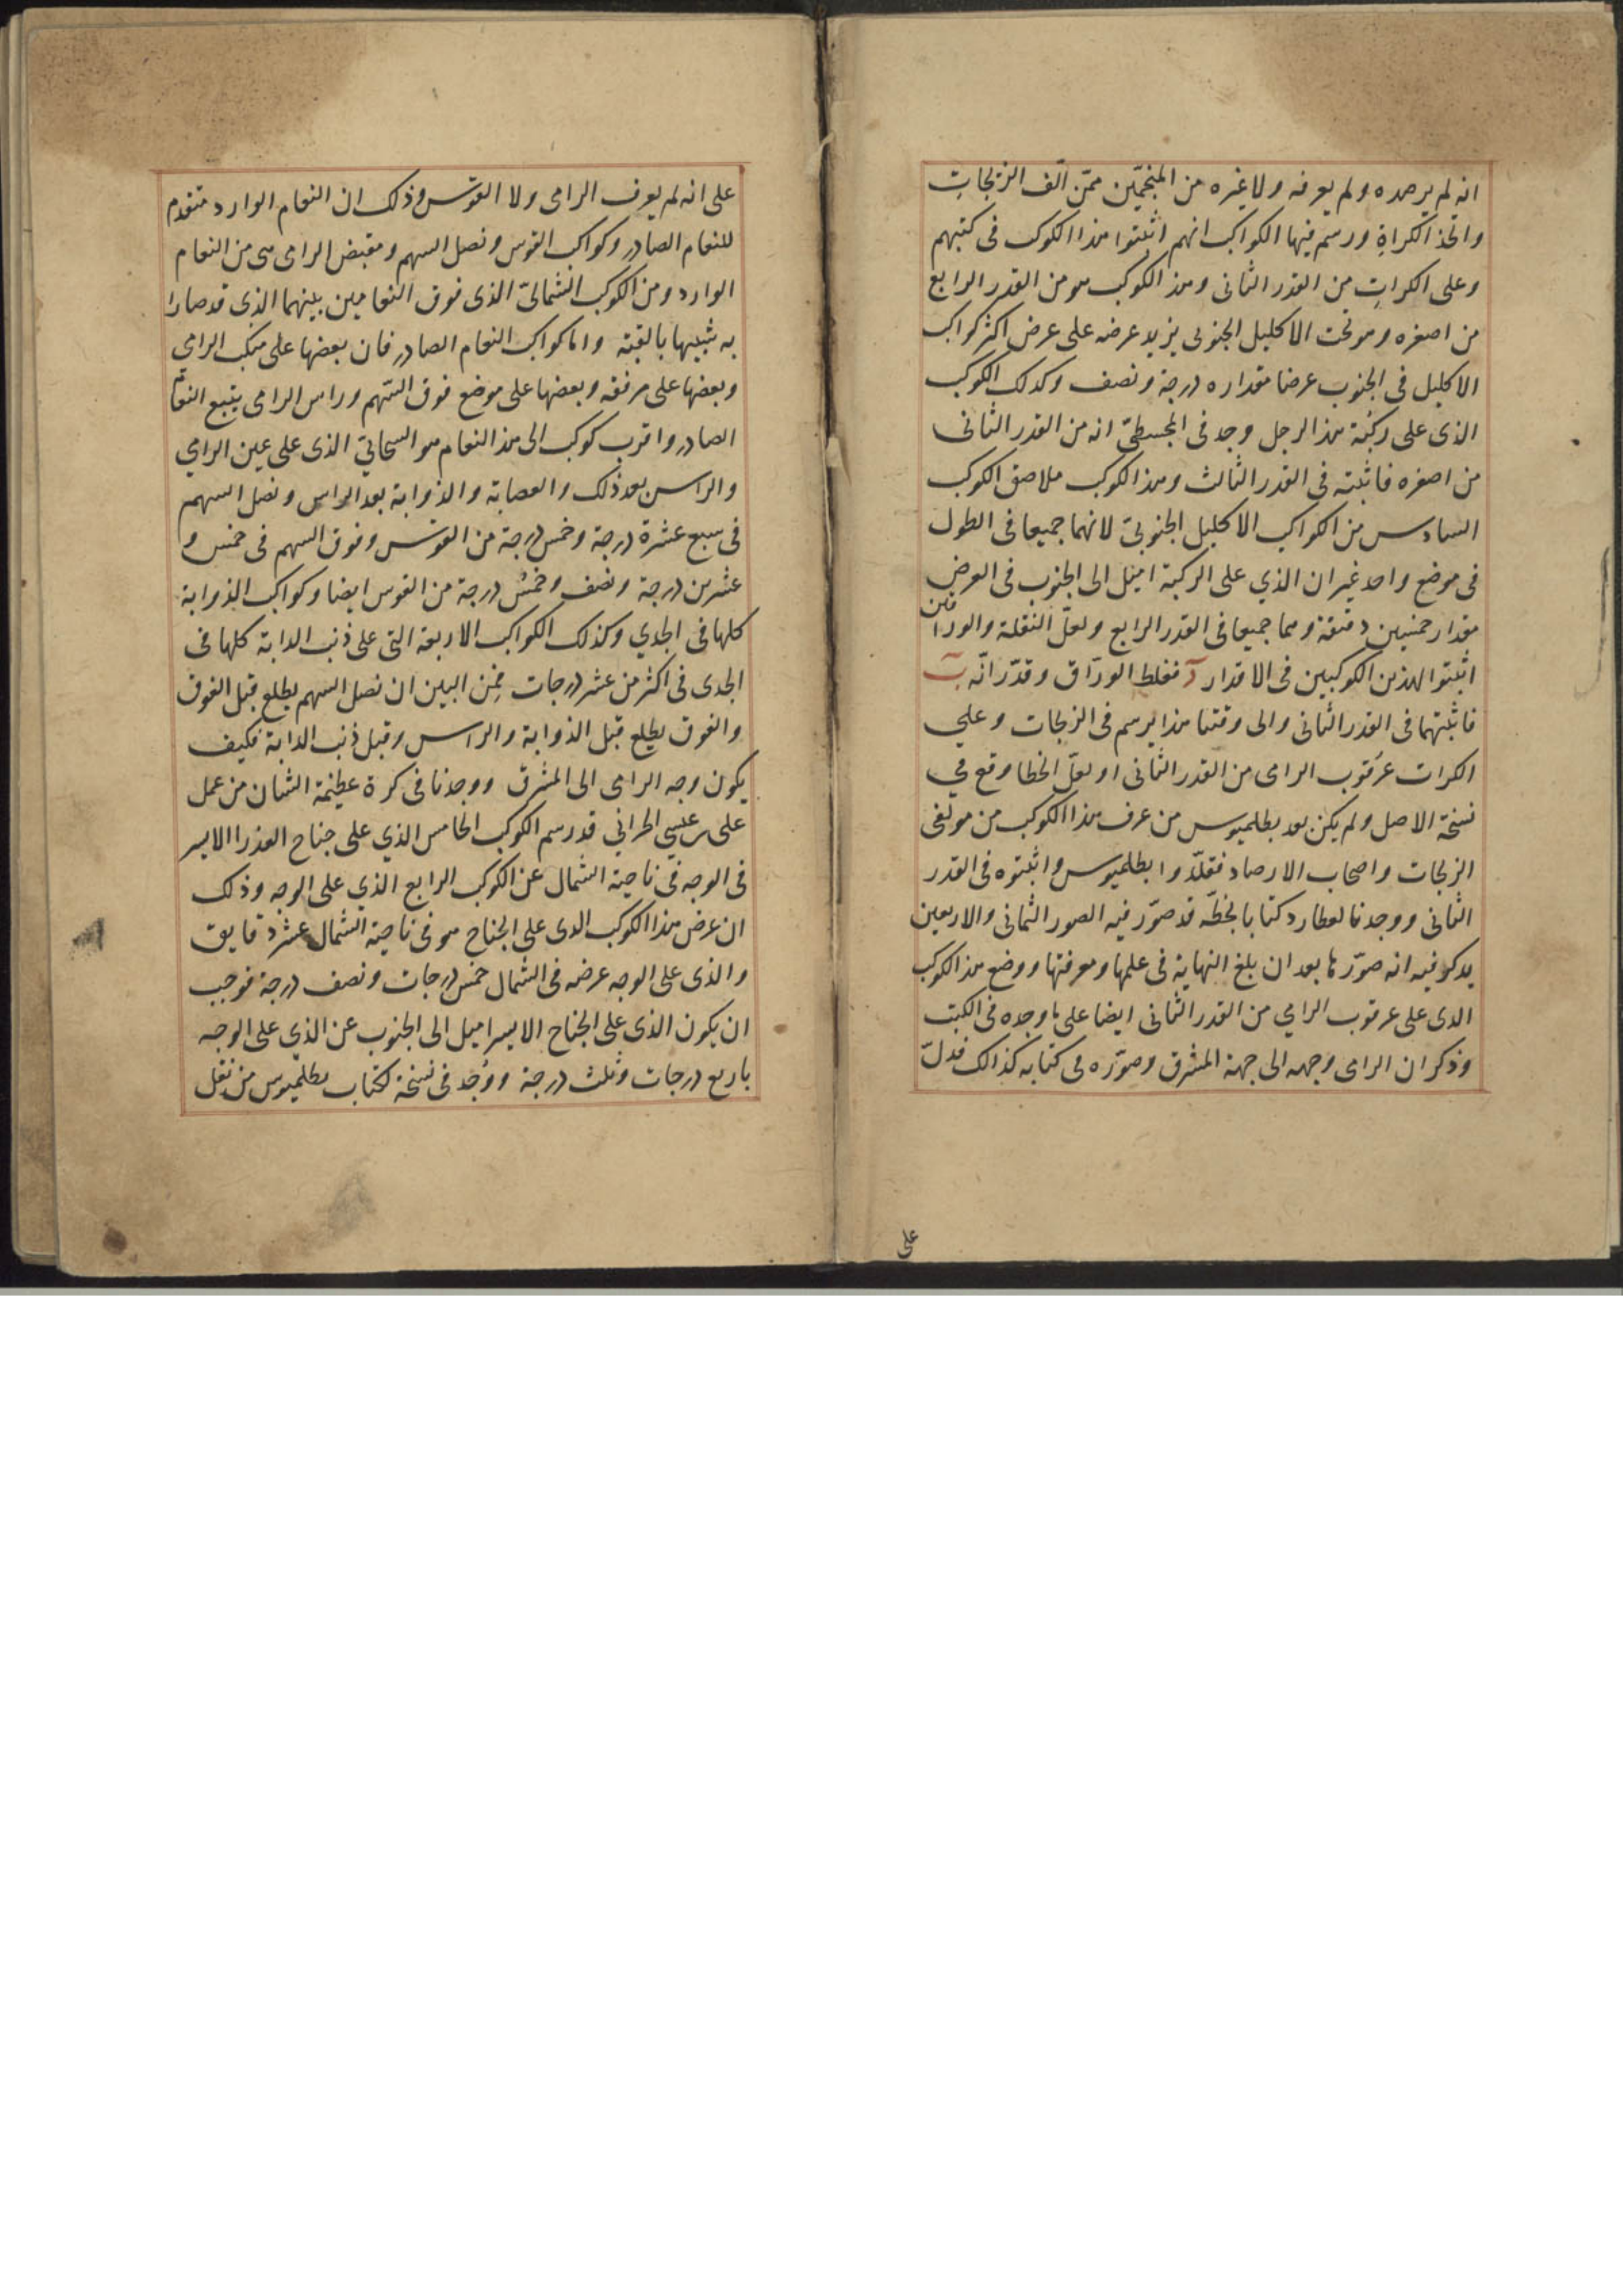 انه لم يرصده ولم يعرفه ولا غيره من المنجمين ممن الف الزيجات
واتخذ الكراة ورسم فيها الكواكب انهم اثبتوا هذا الكوكب في كتبهم
وعلى الكرات من القدر الثاني وهذا الكوكب هو من القدر الرابع
من اصغره وهو تحت الاكليل الجنوبي يزيد عرضه على عرض اكثر كواكب
الاكليل في الجنوب عرضا مقداره درجة ونصف وكذلك الكوكب
الذى على ركبة هذا الرجل وجد فى المجسطى انه من القدر الثانى
من اصغره فاثبته فى القدر الثالث وهذا الكوكب ملاصق الكوكب
السادس من الكواكب الاكليل الجنوبى لانهما جميعا فى الطول
فى موضع واحد غير ان الذي على الركبة اميل الى الجنوب فى العرض
مقدار خمسين دقيقة وهما جميعا فى القدر الرابع ولعل النقلة والوراقين
اثبتوا لهذين الكوكبين فى الاقدار د فغلط الوراق وقدر انه ب
فاثبتهما فى القدر الثانى والى وقتنا هذا يرسم فى الزيجات وعلي
الكرات عرقوب الرامى من القدر الثانى او لعل الخطا وقع في
نسخة الاصل ولم يكن بعد بطلميوس من عرف هذا الكوكب من مولفى
الزيجات واصحاب الارصاد فقلدوا بطلميوس واثبتوه فى القدر
الثانى ووجدنا لعطارد كتابا بخطه قد صور فيه الصور الثمانى والاربعين
يدكر فيه انه صورها بعد ان بلغ النهاية فى علمها ومعرفتها ووضع هذا الكوكب
الدى على عرقوب الرامي من القدر الثانى ايضا على ما وجده فى الكتب
وذكر ان الرامى وجهه الى جهة المشرق وصوره فى كتابه كذالك فدل
على
على انه لم يعرف الرامى ولا القوس وذلك ان النعام الوارد متقدم
للنعام الصادر وكواكب القوس ونصل السهم ومقبض الرامى هى من النعام
الوارد ومن الكوكب الشمالى الذى فوق النعامين بينهما الذى قد صارا
به شبيها بالقبة واما كواكب النعام الصادر فان بعضها على منكب الرامي
وبعضها على مرفقه وبعضها على موضع فوق السهم وراس الرامى يتبع النعام
الصادر واقرب كوكب الى هذ النعام هو السحابى الذى على عين الرامي
والراس بعد ذلك والعصابة والذوابة بعد الراس ونصل السهم
فى سبع عشرة درجة وخمس درجة من القوس وفوق السهم فى خمس و
عشرين درجة ونصف وخمس درجة من القوس ايضا وكواكب الذوابة
كلها فى الجدي وكذلك الكواكب الاربعة التى على ذنب الدابة كلها فى
الجدى فى اكثر من عشر درجات فمن البين ان نصل السهم يطلع قبل الفوق
والفوق يطلع قبل الذوابة والراس وقبل ذنب الدابة فكيف
يكون وجه الرامى الى المشرق ووجدنا فى كرة عظيمة الشان من عمل
على بن عيسي الحراني قد رسم الكوكب الخامس الذي على جناح العذرا الايسر
فى الوجه في ناحية الشمال عن الكوكب الرابع الذي على الوجه وذلك
ان عرض هذا الكوكب الدى على الجناح هو فى ناحية الشمال عشر دقايق
والذى على الوجه عرضه فى الشمال خمس درجات ونصف درجة فوجب
ان يكون الذى على الجناح الايسر اميل الى الجنوب عن الذي على الوجه
باربع درجات وثلث درجة ووجد فى نسخة لكتاب بطلميوس من نقل